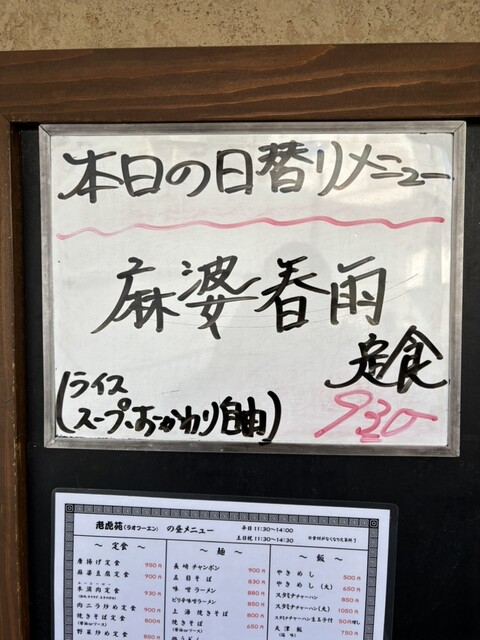 本日の日替りメニュー
麻婆春雨
定食
(ライス
スープ、おかわり自由)
930
老虎苑(ラオフーエン) の昼メニュー
平日 11:30〜14:00
土日祝 11:30〜14:30
〜 定食 〜
唐揚げ定食 950円
麻婆豆腐定食 900円
930円
肉ニラ炒め定食 900円
焼きそば定食 800円
野菜炒め定食
〜 麺 〜
長崎チャンポン 900円
五目そば 830円
味噌ラーメン 880円
ピリ辛味噌ラーメン 880円
上海焼きそば 800円
焼きそば 660円
〜 飯 〜
やきめし 500円
やきめし (大) 650円
スタミナチャーハン 850円
スタミナチャーハン(大) 1050円
天津飯 750円